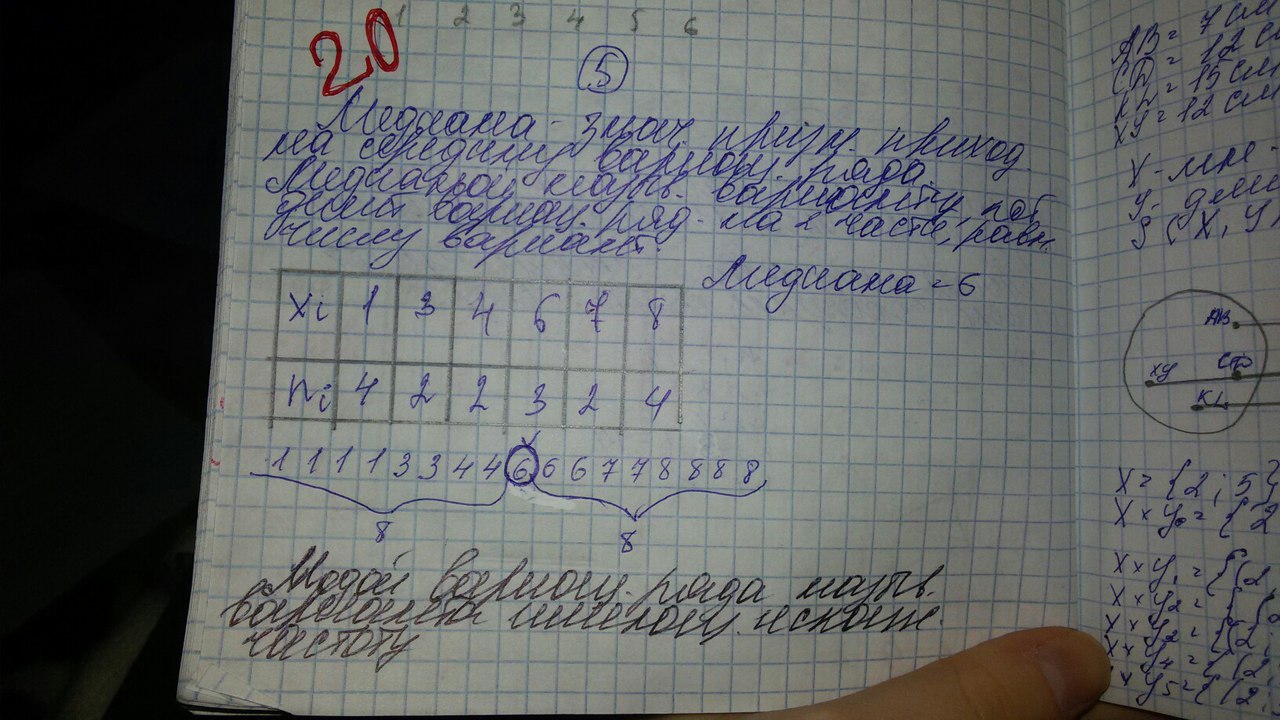 1 2 3 4 5 6
20
5
Медиана - знач. призн. приход.
на середину вариац. ряда.
Медианой назыв. варианту, кот.
делит вариац. ряд. на 2 части, равн.
числу вариант.
Медиана = 6
Xi 1 3 4 6 7 8
ni 4 2 2 3 2 4
1 1 1 1 3 3 4 4 6 6 6 7 7 8 8 8 8
8 8
Модой вариац. ряда назыв.
варианта имеющ.
частоту
AB = 7 см
CD = 12 см
KL = 15 см
XY = 12 см
X - мн
У -
S (X, У
AB
CD
XY
KL
X = {2; 5}
X × У = { 2
X × У1 = {(2
X × У2 = {(2
X × У2 = {(2;
X × У4 = {(2
X × У5 = {(2;